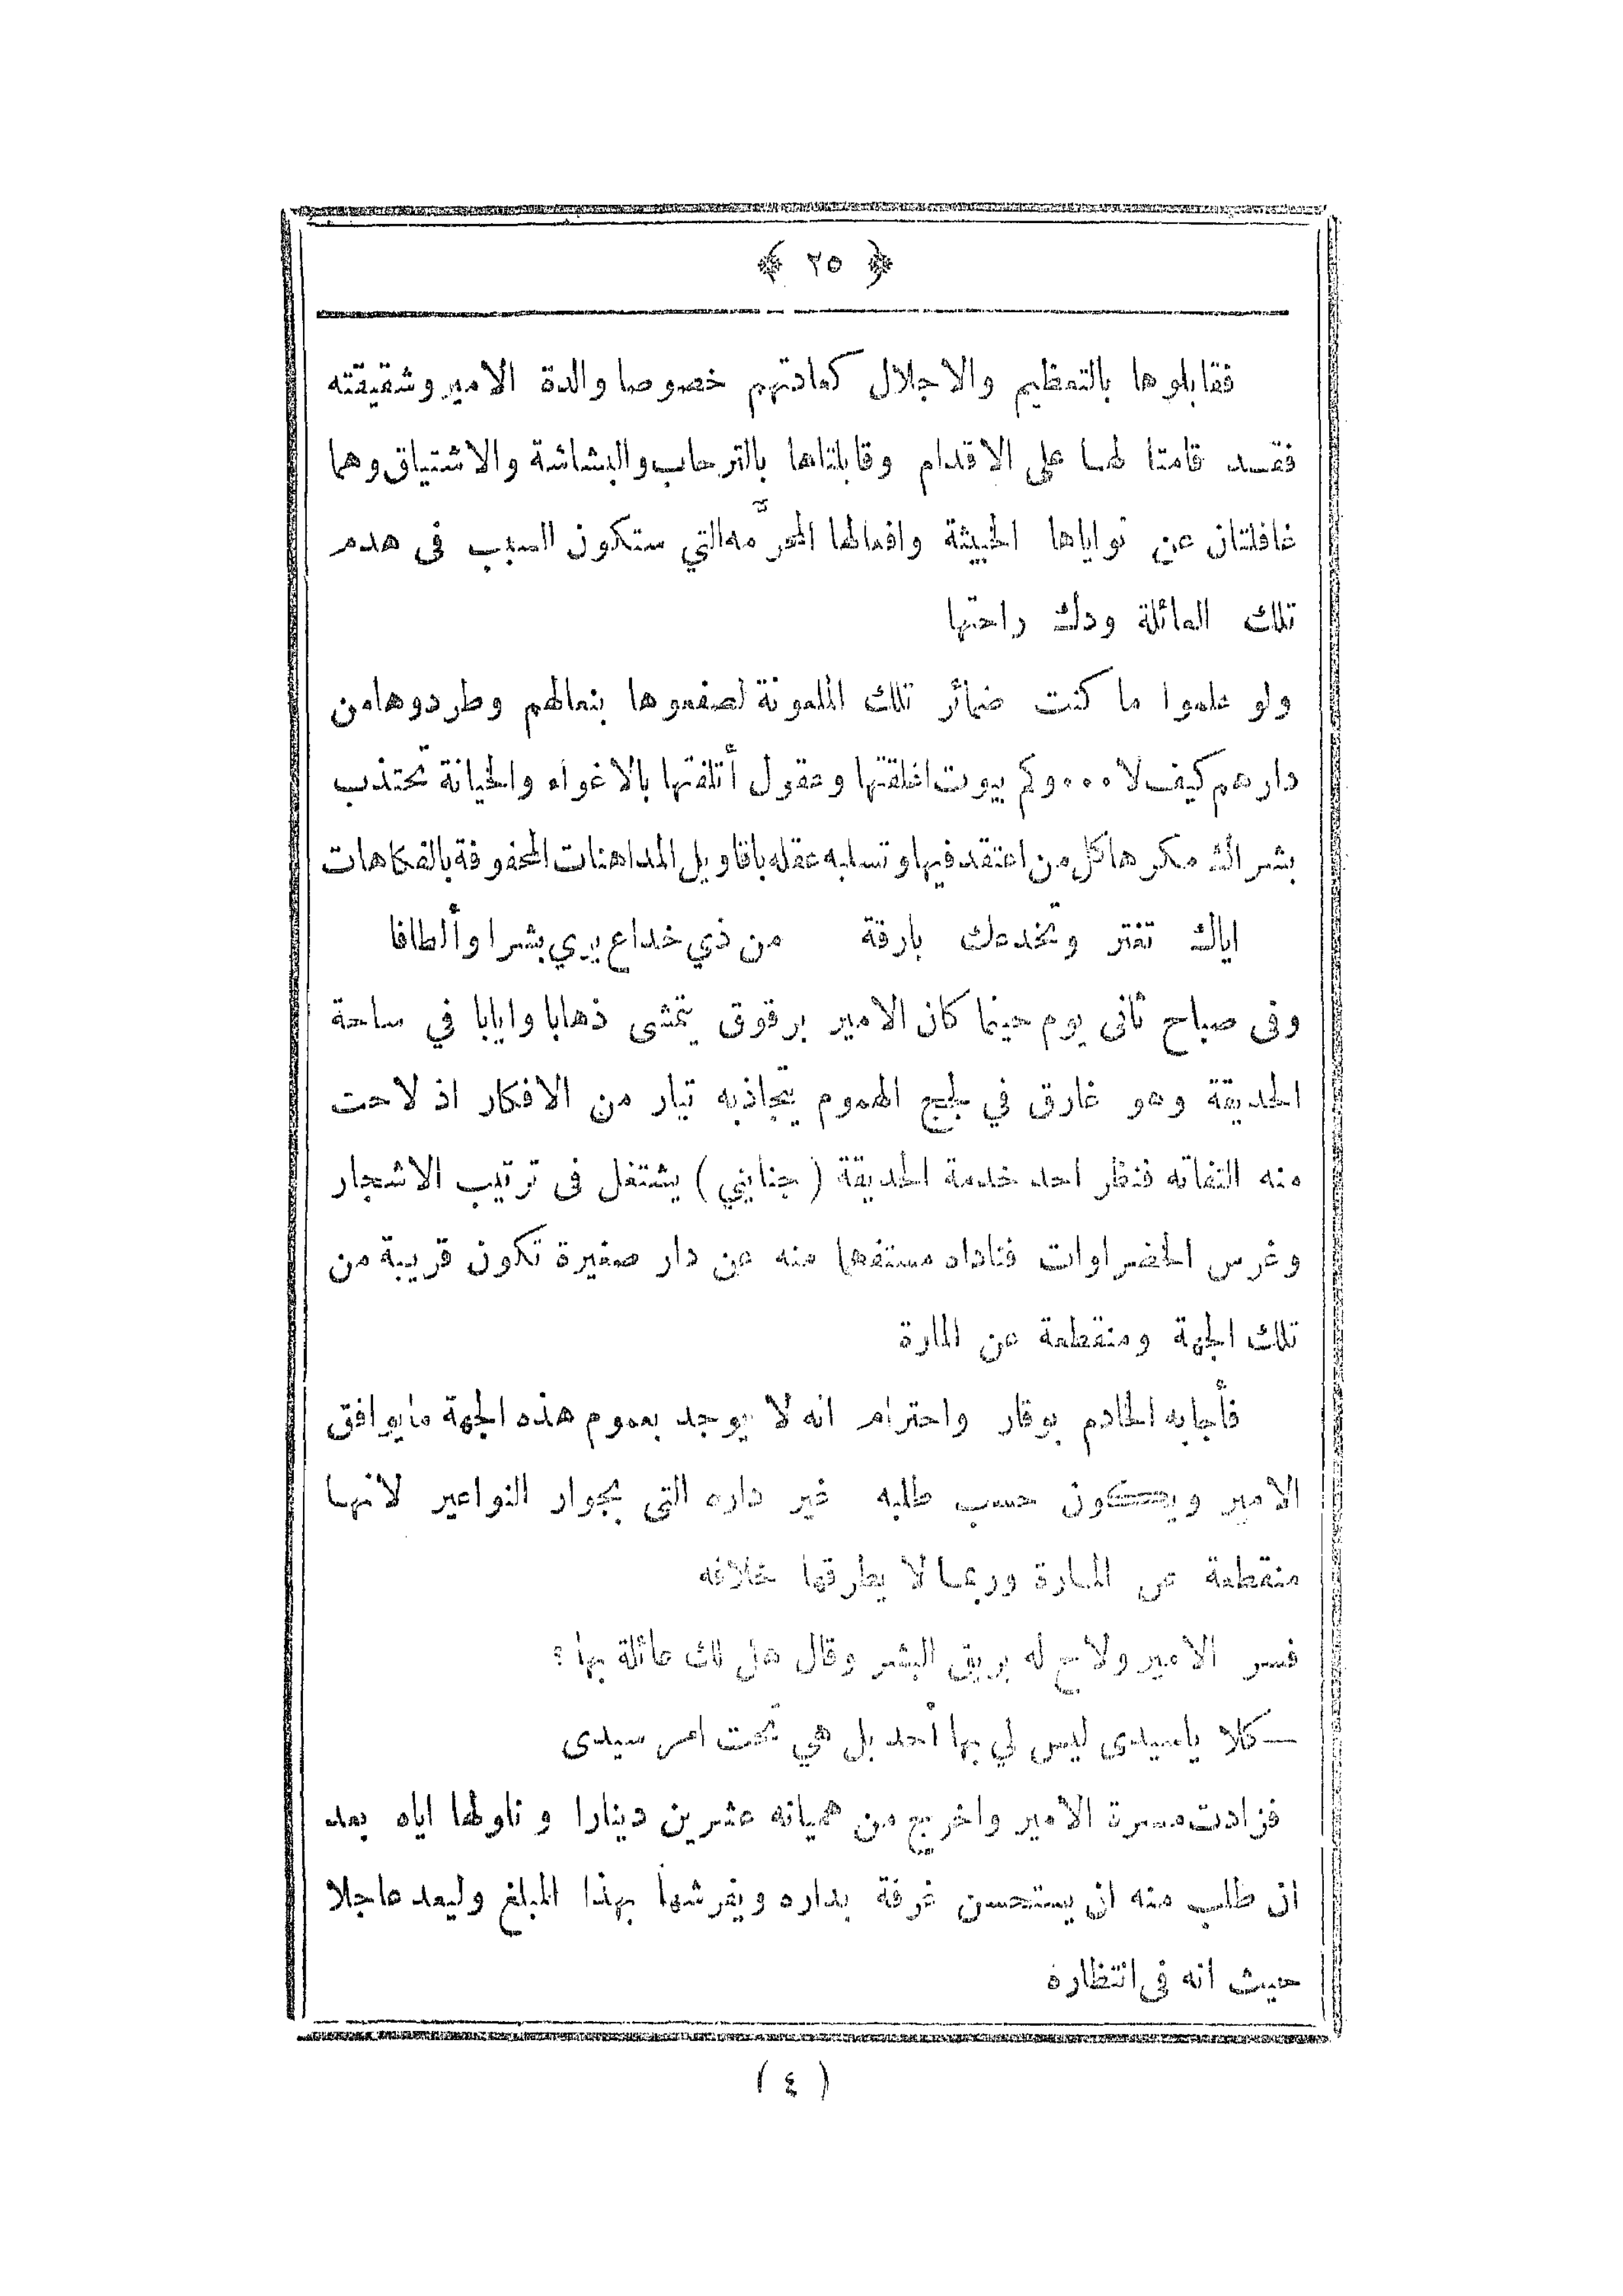 ﴿ ٢٥ ﴾
فقابلوها بالتعظيم والاجلال كعادتهم خصوصا والدة الامير وشقيقته
فقد قامتا لها على الاقدام وقابلتاها بالترحاب والبشاشة والاشتياق وهما
غافلتان عن نواياها الخبيثة وافعالها المحرَّمه التي ستكون السبب فى هدم
تلك العائلة ودك راحتها
ولو علموا ما كنت ضمائر تلك الملعونة لصفعوها بنعالهم وطردوها من
دارهم كيف لا ٠٠٠ وكم بيوت اغلقتها وعقول أتلفتها بالاغواء والخيانة تجتذب
بشراك مكرها كل من اعتقد فيها وتسلبه عقله باقاويل المداهنات المحفوفة بالفكاهات
اياك تغتر وتخدعك بارقة من ذي خداع يري بشرا وألطافا
وفى صباح ثانى يوم حينما كان الامير برقوق يتمشى ذهابا وايابا في ساحة
الحديقة وهو غارق في لجج الهموم يتجاذبه تيار من الافكار اذ لاحت
منه التفاته فنظر احد خدمة الحديقة ( جنايني ) يشتغل فى ترتيب الاشجار
وغرس الخضراوات فناداه مستفهما منه عن دار صغيرة تكون قريبة من
تلك الجهة ومنقطعة عن المارة
فأجابه الخادم بوقار واحترام انه لا يوجد بعموم هذه الجهة ما يوافق
الامير ويكون حسب طلبه غير داره التى بجوار النواعير لانها
منقطعة عن المارة وربما لا يطرقها خلافه
فسر الامير ولاح له بريق البشر وقال هل لك عائلة بها ؟
— كلا ياسيدى ليس لي بها أحد بل هي تحت امر سيدى
فزادت مسرة الامير واخرج من هميانه عشرين دينارا و ناولها اياه بعد
ان طلب منه ان يستحسن غرفة بداره ويفرشها بهذا المبلغ وليعد عاجلا
حيث انه فى انتظاره
( ٤ )